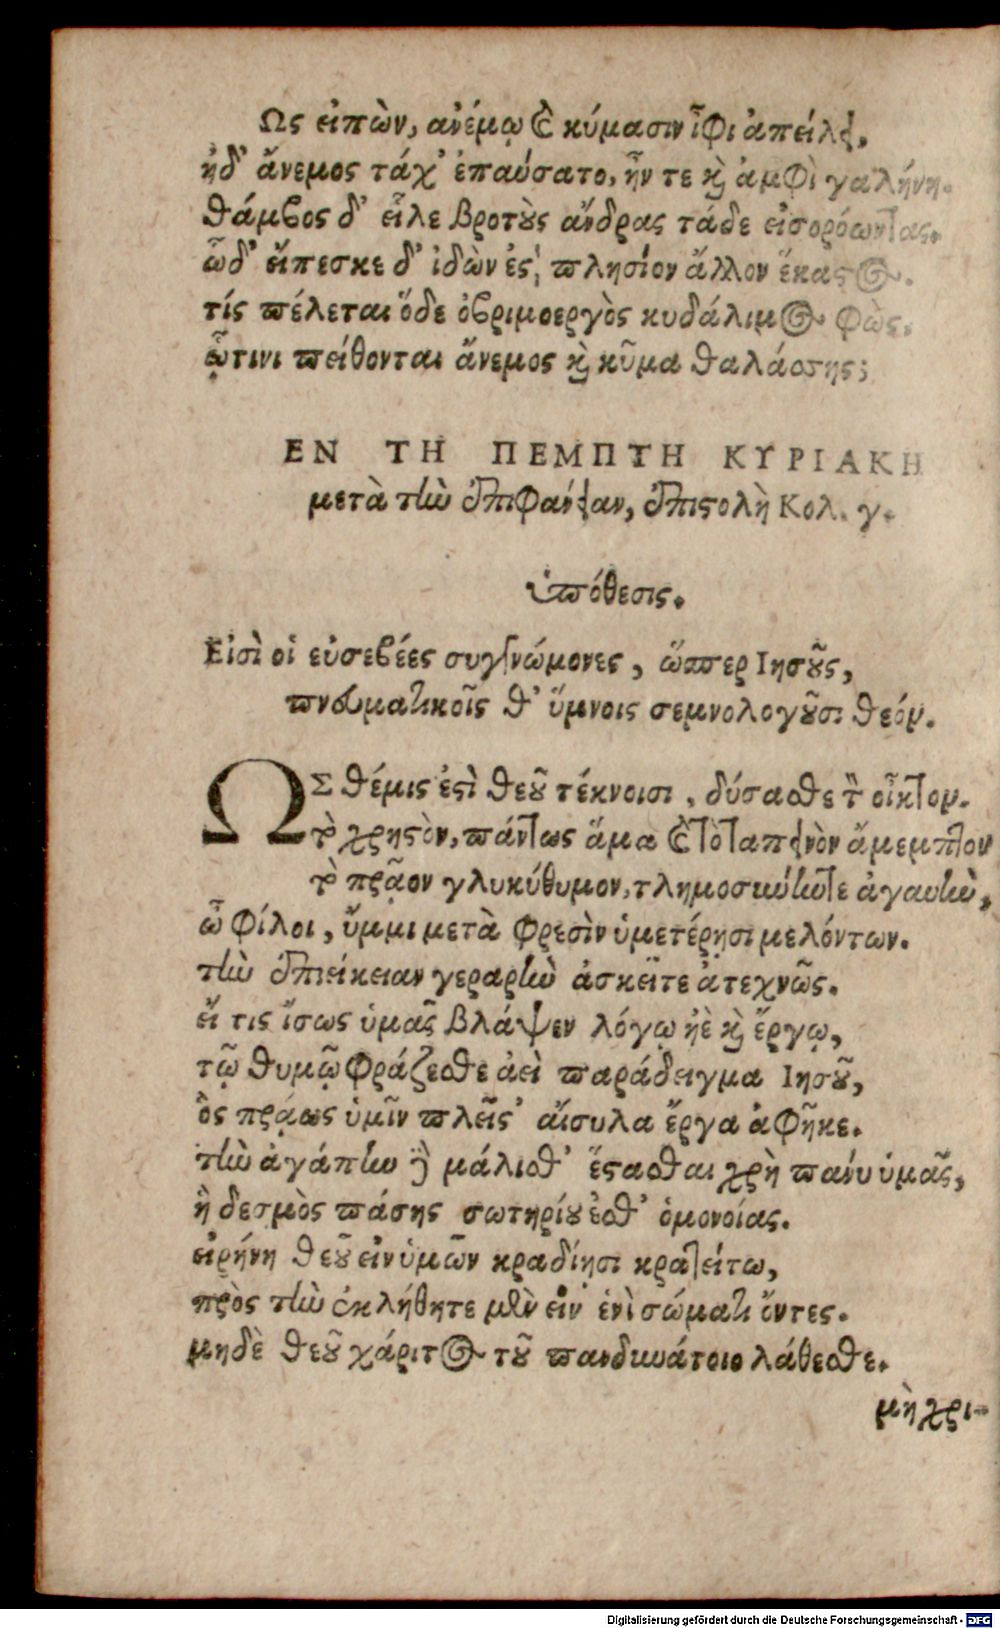 Ως εἰπὼν, ἀνέμῳ καὶ κύμασιν ἶφι ἀπείλει,
ἠδ' ἄνεμος τάχ' ἐπαύσατο, ἦν τε καὶ ἀμφὶ γαλήνη.
θάμβος δ' εἷλε βροτοὺς ἄνδρας τάδε εἰσορόωντας.
ὧδ' εἴπεσκε δ' ἰδὼν ἐς πλησίον ἄλλον ἕκαστος.
τίς πέλεται ὅδε ὀβριμοεργὸς κυδάλιμος φὼς,
ᾧτινι πείθονται ἄνεμος καὶ κῦμα θαλάσσης;
ΕΝ ΤΗ ΠΕΜΠΤΗ ΚΥΡΙΑΚΗ
μετὰ τὴν ἐπιφανείαν, ἐπιστολὴ Κολ. γ.
ὑπόθεσις.
Εἰσὶ οἱ εὐσεβέες συγγνώμονες, ὥσπερ Ιησοῦς,
πνευματικοῖς θ' ὕμνοις σεμνολογοῦσι θεόν.
ΩΣ θέμις ἐστὶ θεοῦ τέκνοισι, δύσασθε τὸν οἶκτον.
τὸ χρηστὸν, πάντως ἅμα καὶ τὸ ταπεινὸν ἄμεμπτον
τὸ πρᾷον γλυκύθυμον, τλημοσύνην τε ἀγαυὴν,
ὦ φίλοι, ὔμμι μετὰ φρεσὶν ὑμετέρῃσι μελόντων.
τὴν ἐπιείκειαν γεραρὴν ἀσκεῖτε ἀτεχνῶς.
εἴ τις ἴσως ὑμᾶς βλάψεν λόγῳ ἠὲ καὶ ἔργῳ,
τῷ θυμῷ φράζεσθε ἀεὶ παράδειγμα Ιησοῦ,
ὃς πρᾴως ὑμῖν πλεῖς' αἴσυλα ἔργα ἀφῆκε.
τὴν ἀγάπην δὲ μάλισθ' ἕσασθαι χρὴ πάνυ ὑμᾶς,
ἣ δεσμὸς πάσης σωτηρίου ἐσθ' ὁμονοίας.
εἰρήνη θεοῦ εἰν ὑμῶν κραδίῃσι κρατείτω,
πρὸς τὴν ἐκλήθητε μὲν εἰν ἑνὶ σώματι ὄντες.
μηδὲ θεοῦ χάριτος τοῦ πανδυνάτοιο λάθεσθε.
μὴ χρι-
Digitalisierung gefördert durch die Deutsche Forschungsgemeinschaft - DFG